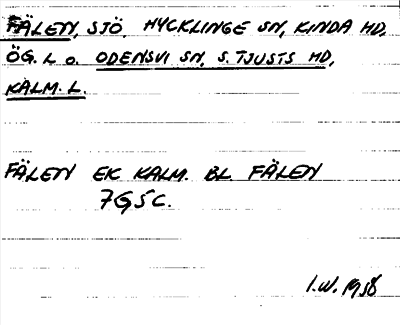 FÄLEN, SJÖ, HYCKLINGE SN, KINDA HD,
ÖG. L o. ODENSVI SN, S. TJUSTS HD,
KALM. L.
FÄLEN EK KALM. BL. FÄLEN
7G5C.
I.W. 1958